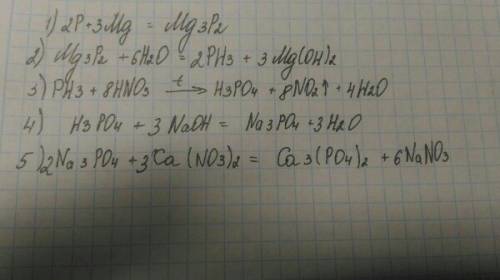 1) 2P + 3Mg = Mg3P2
2) Mg3P2 + 6H2O = 2PH3 + 3Mg(OH)2
3) PH3 + 8HNO3 —t→ H3PO4 + 8NO2↑ + 4H2O
4) H3PO4 + 3NaOH = Na3PO4 + 3H2O
5) 2Na3PO4 + 3Ca(NO3)2 = Ca3(PO4)2 + 6NaNO3